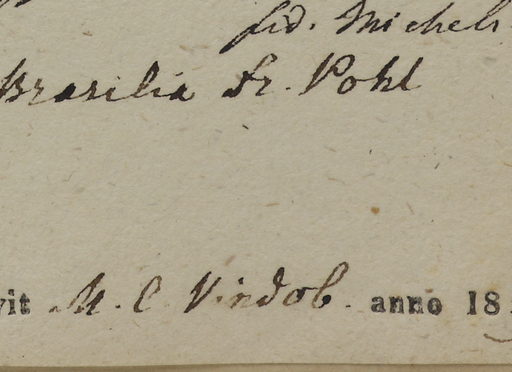 fid. Michel
Brasilia Dr. Pohl
vit M. C. Vindob. anno 18